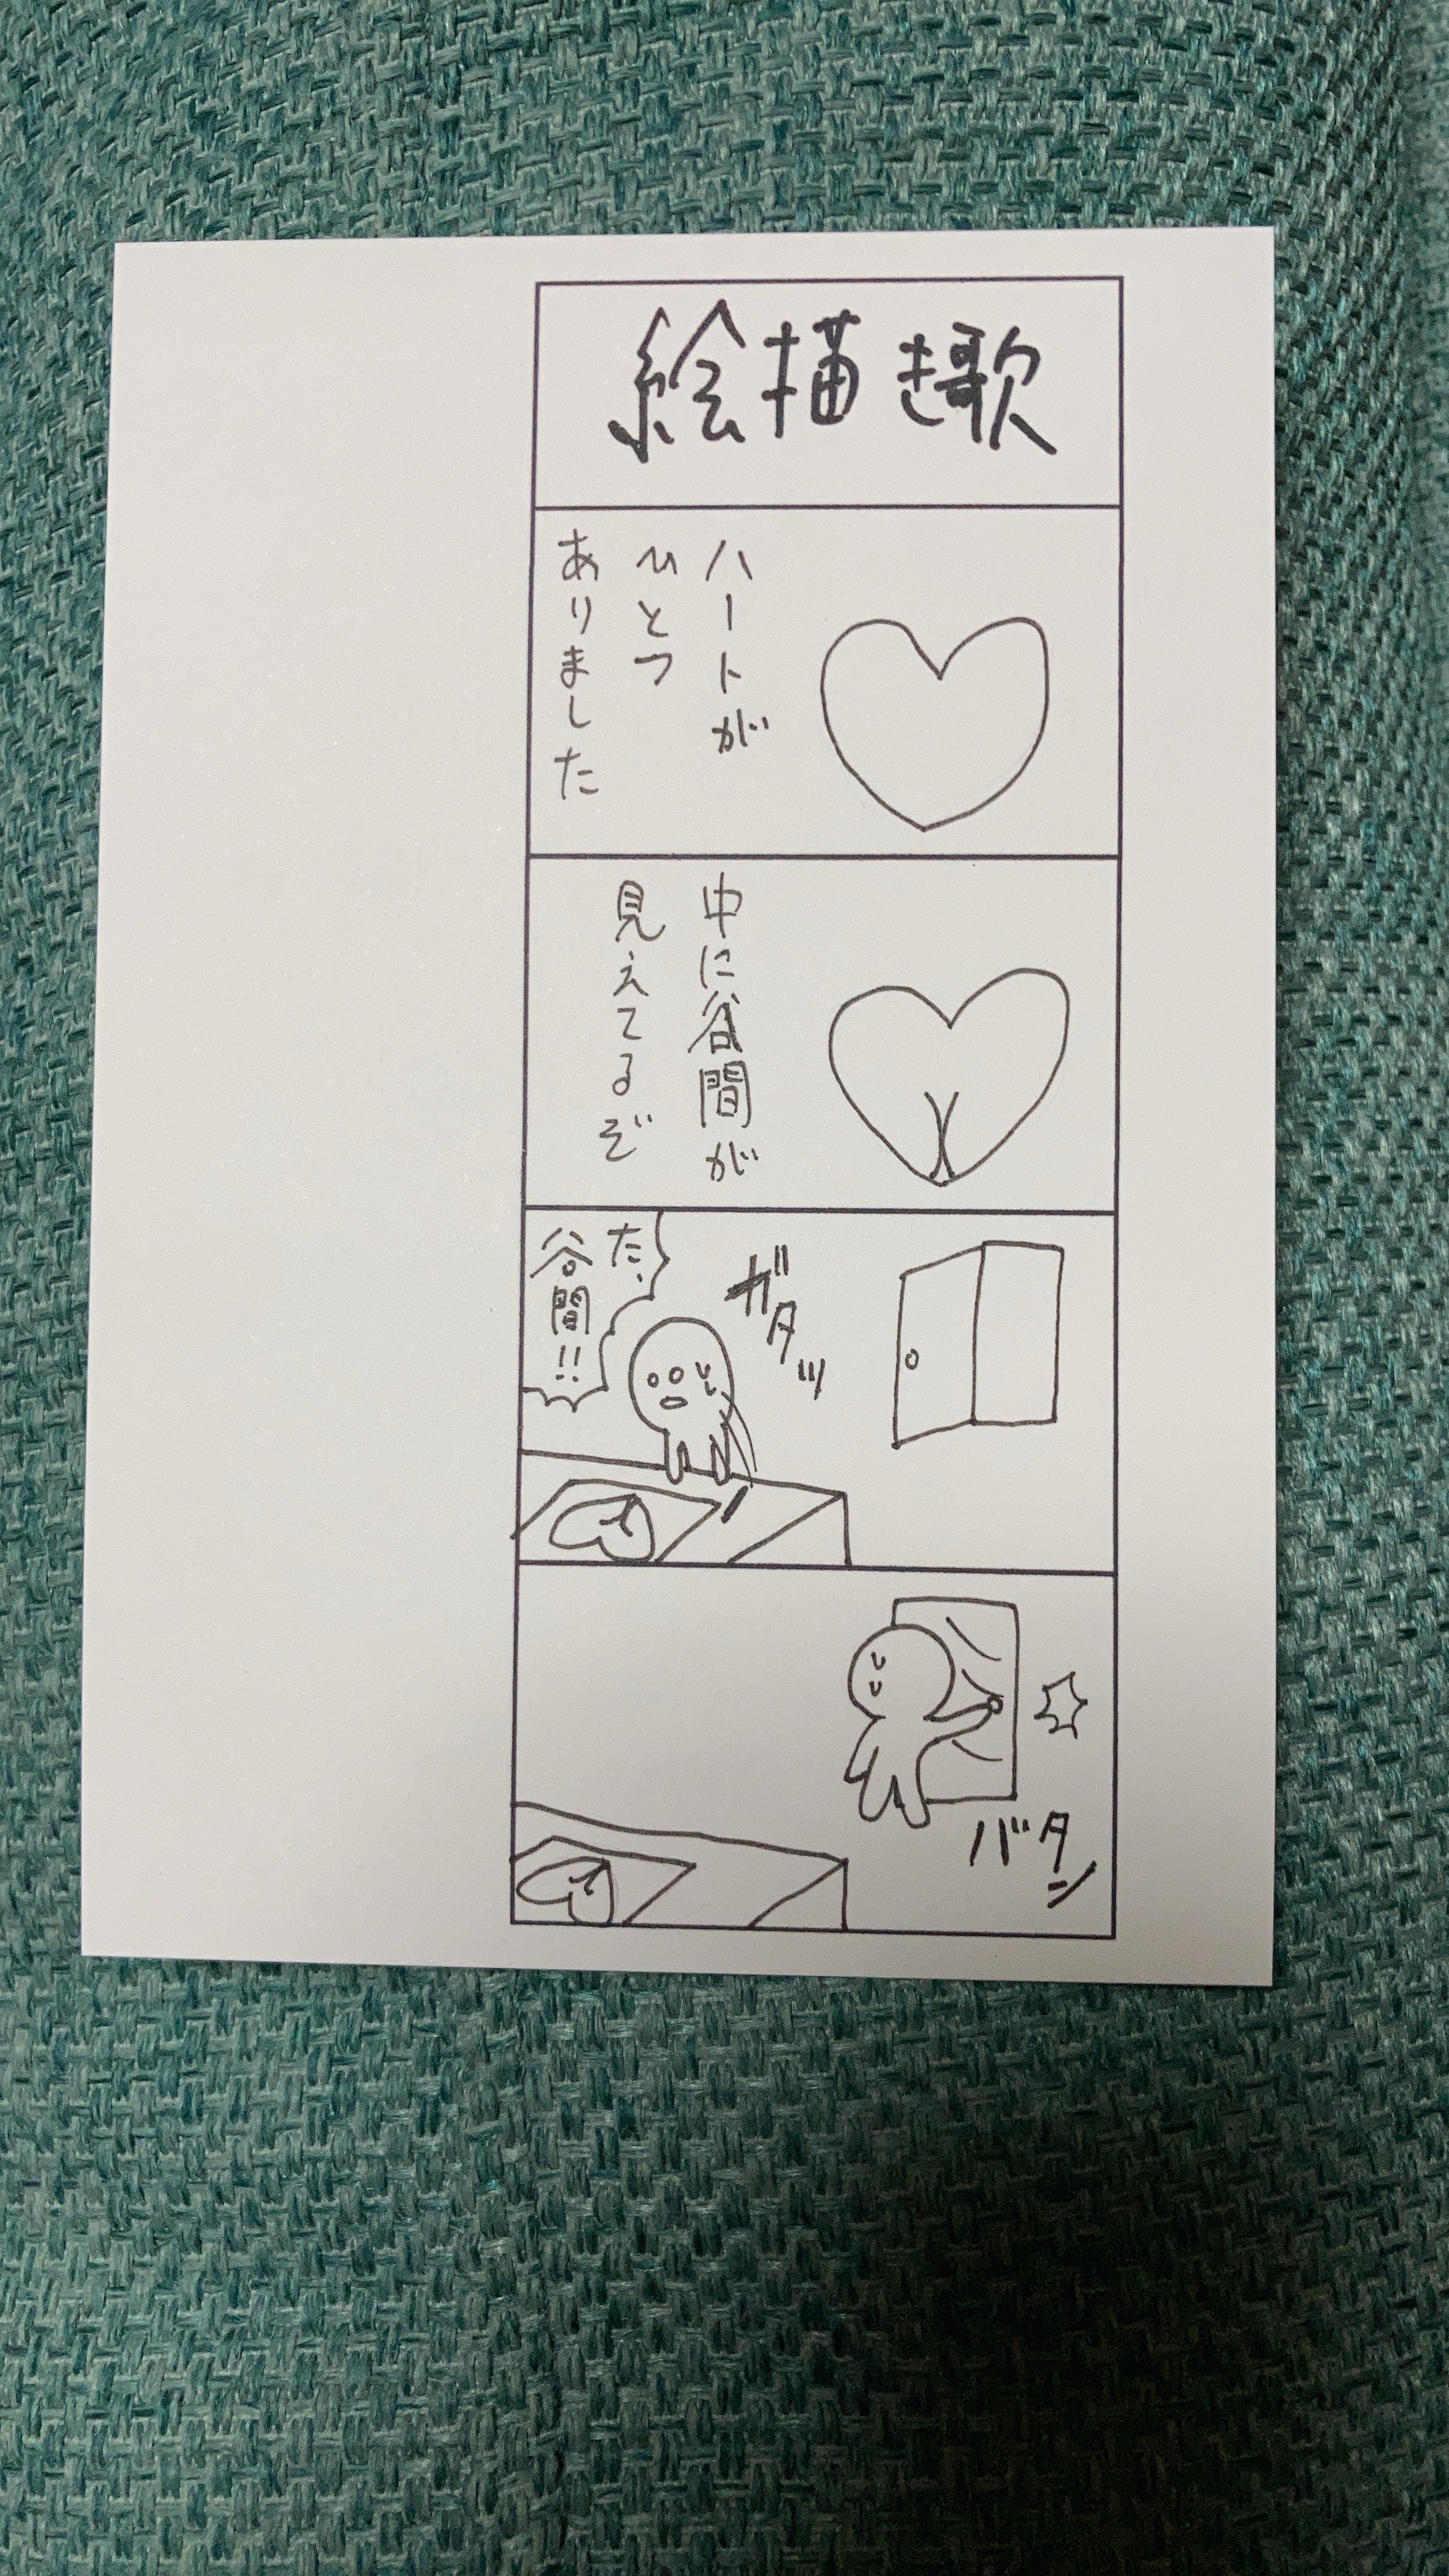 絵描き歌
ハートが
ひとつ
ありました
中に谷間が
見えてるぞ
ガタッ
た、
谷間!!
バタン